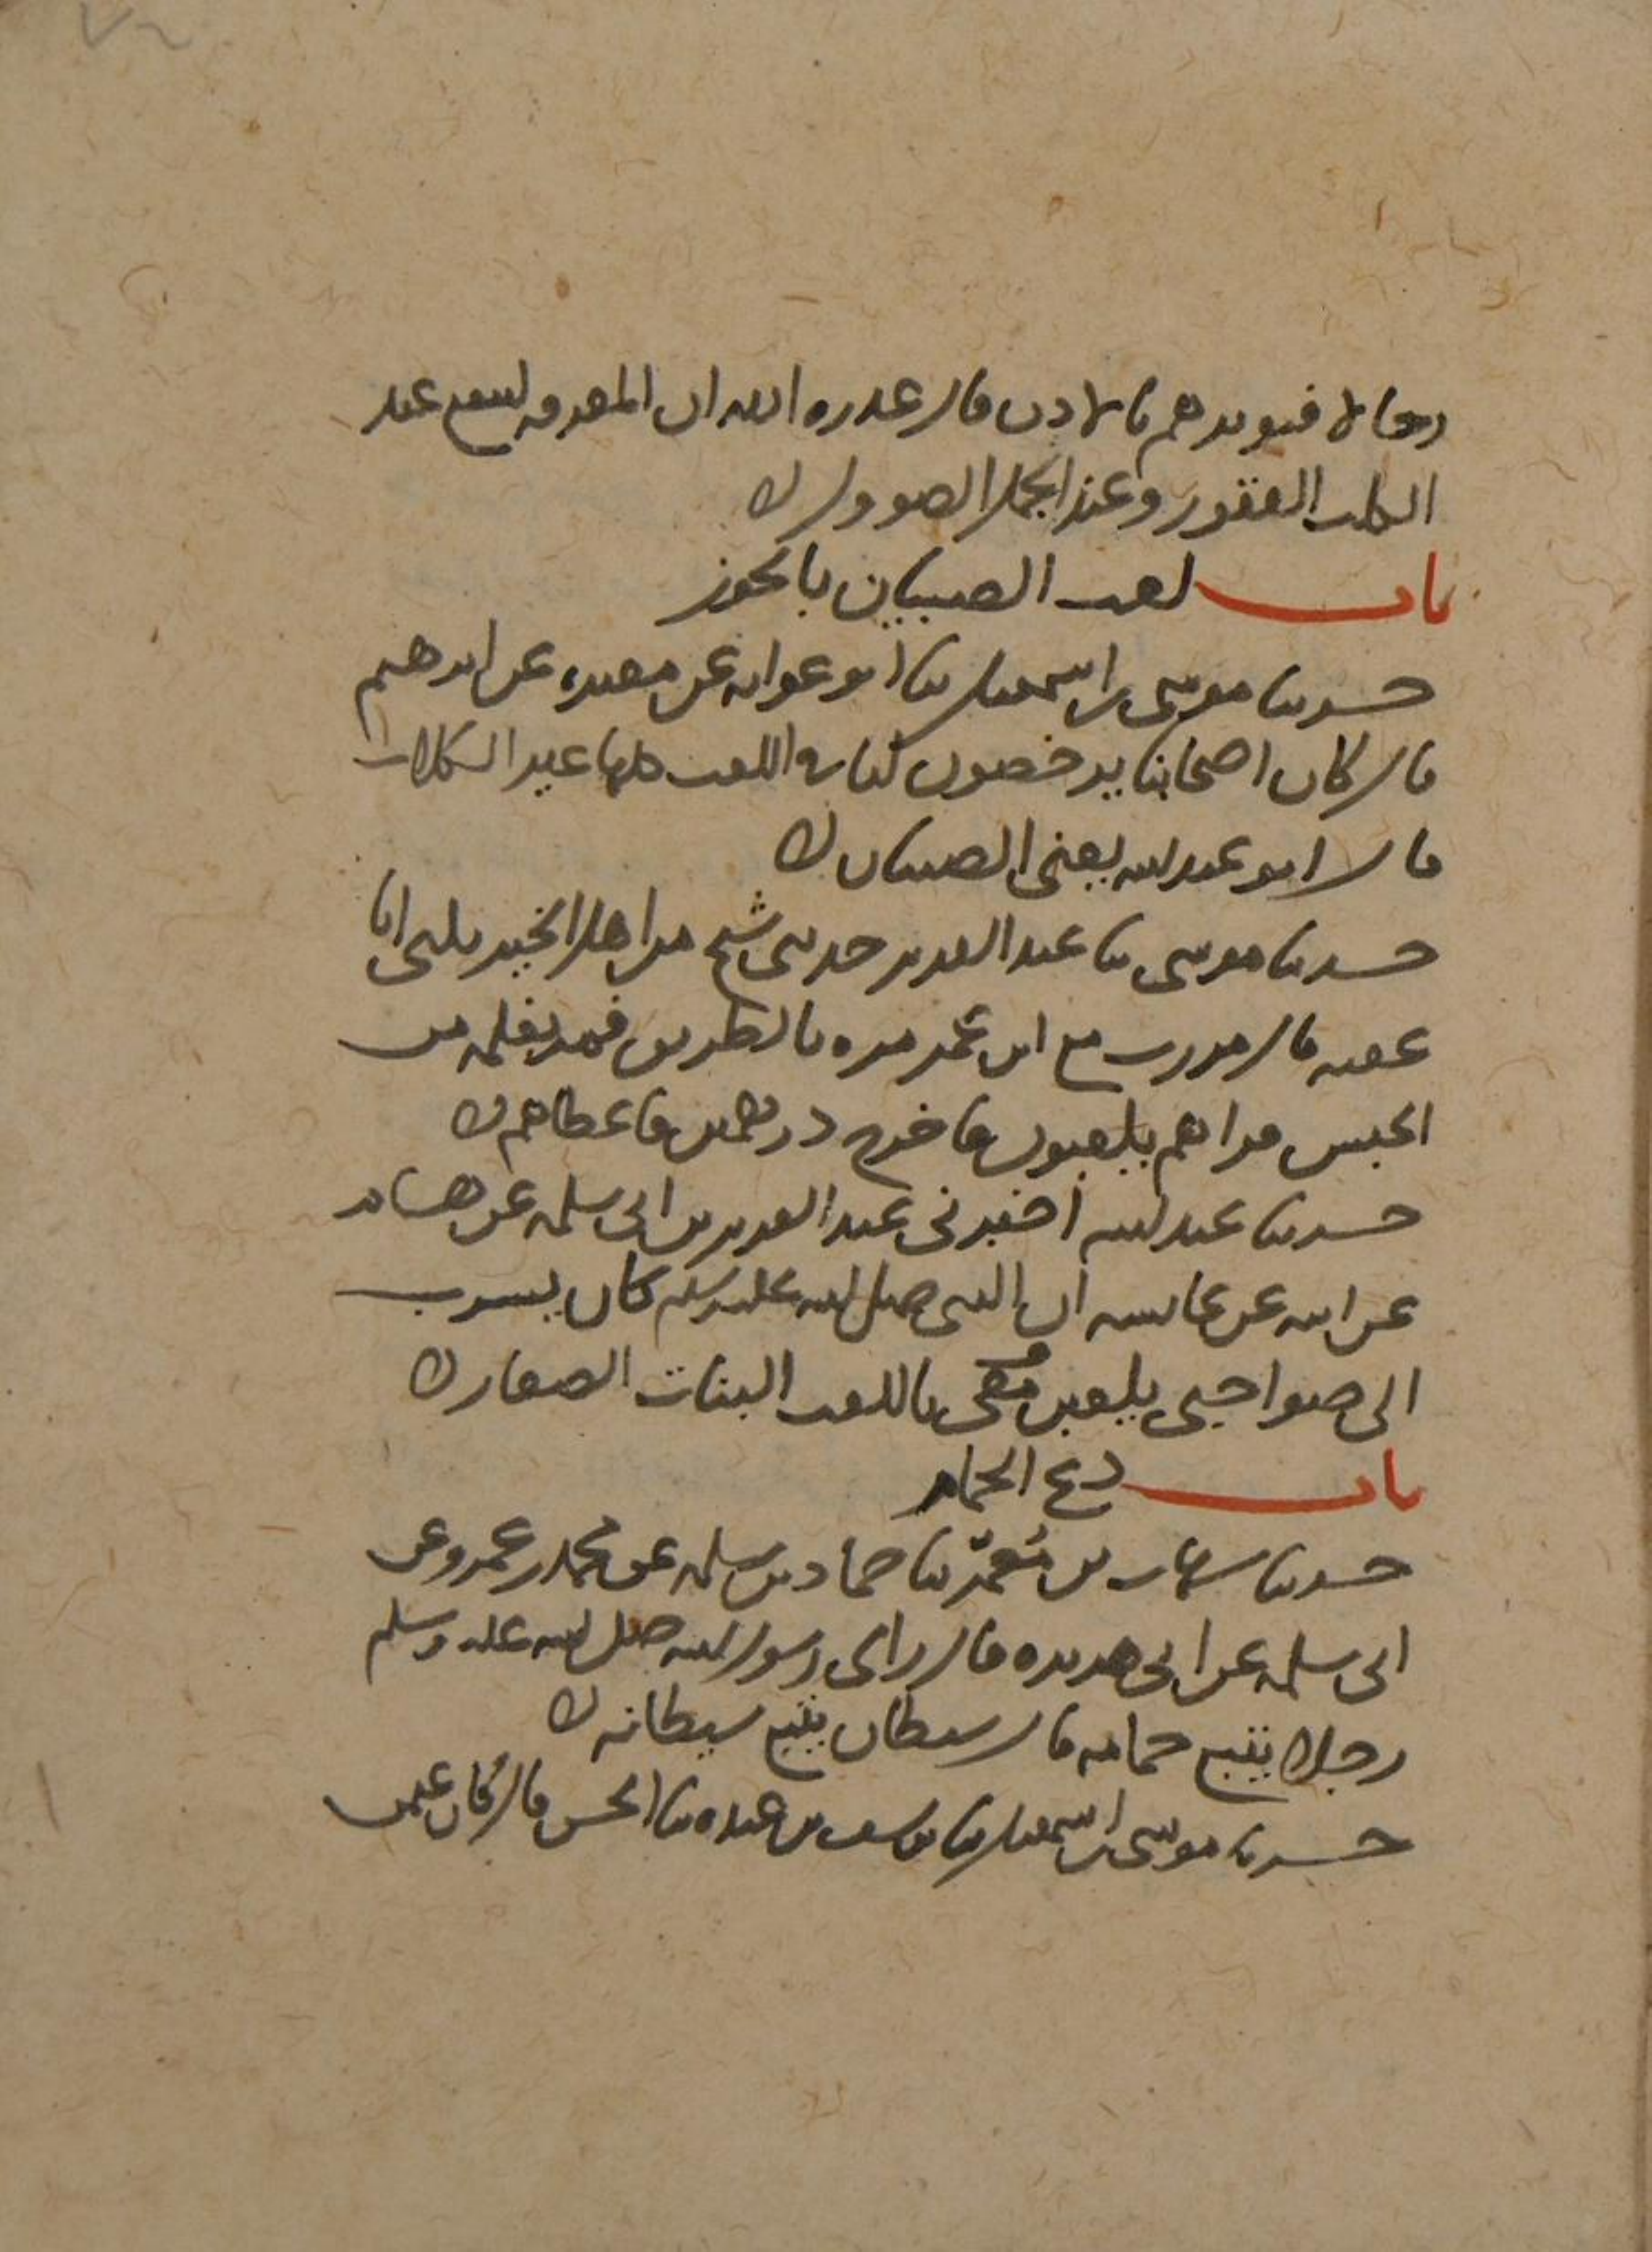 رجالا فنوبرهم بالاذن قال عذره الله ان المعرفه لتنفع عند
الكلب العقور وعند الجمل الصوول ه
باب لعب الصبيان بالجوز
حدثنا موسى بن اسمعيل ثنا ابو عوانه عن مغيره عن ابرهيم
قال كان اصحابنا يرخصون لنا في اللعب كلها غير الكلاب
قال ابو عبد الله يعني الصبيان ه
حدثنا موسى ثنا عبد العزيز حدثني شيخ من اهل الخير يكنى ابا
عقبه قال مررت مع ابن عمر مره بالطريق فمر بغلمه من
الحبش فراهم يلعبون فاخرج درهمين فاعطاهم ه
حدثنا عبد الله اخبرني عبد العزيز بن ابي سلمه عن هشام
عن ابيه عن عايشه ان النبي صلى الله عليه وسلم كان يسرب
الى صواحبي يلعبن معي باللعب البنات الصغار ه
باب ذبح الحمام
حدثنا شهاب بن مُعمّر ثنا حماد بن سلمه عن محمد بن عمرو عن
ابي سلمه عن ابي هريره قال راى رسول الله صلى الله عليه وسلم
رجلا يتبع حمامه قال شيطان يتبع شيطانه ه
حدثنا موسى بن اسمعيل ثنا يوسف بن عبده ثنا الحسن قال كان عثمن